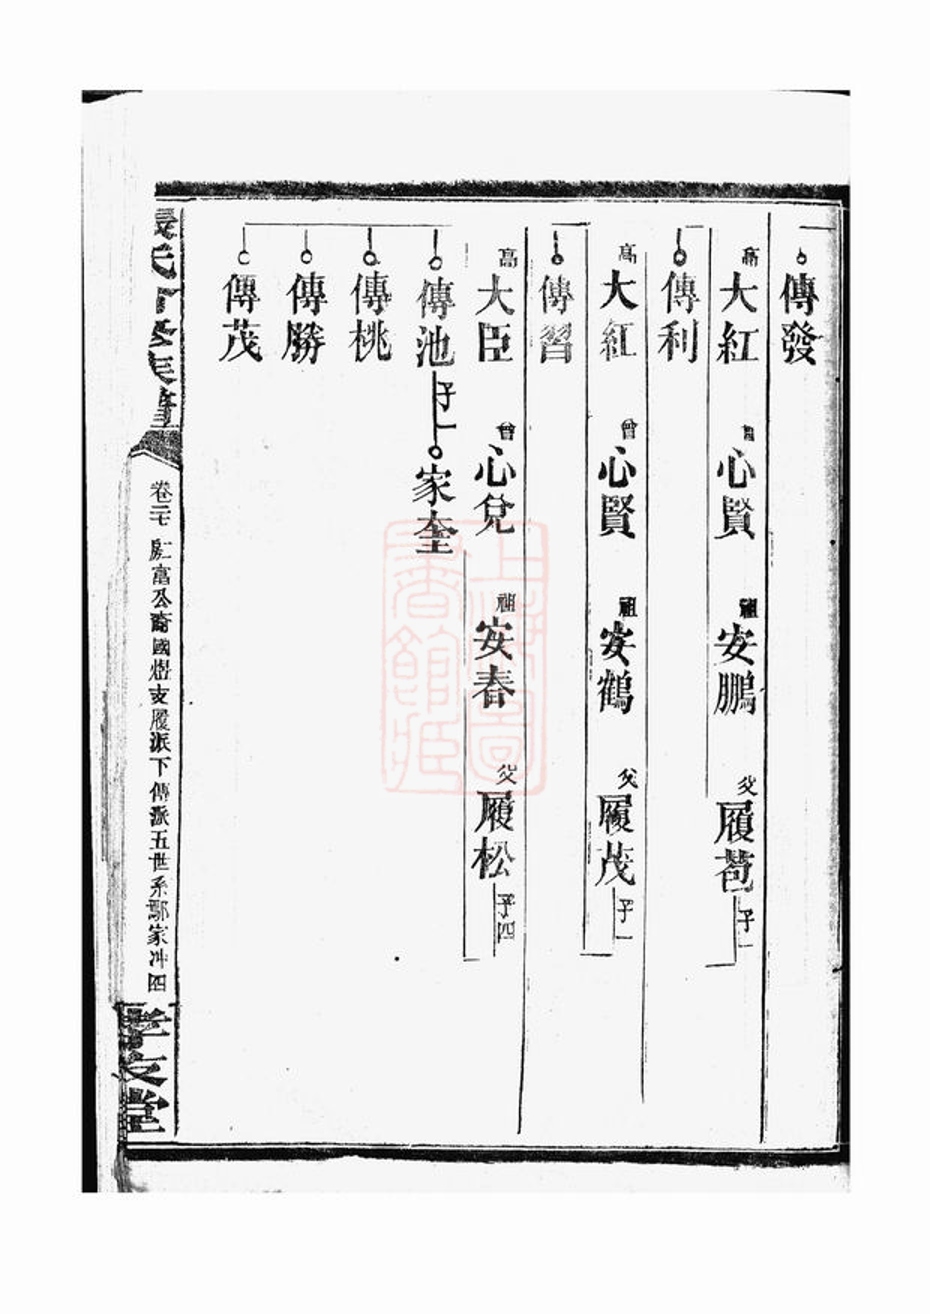 傳發
高 大紅 曾 心賢 祖 安鵬 父 履苞 子一
傳利
高 大紅 曾 心賢 祖 安鶴 父 履茂 子一
傳習
高 大臣 曾 心兌 祖 安春 父 履松 子四
傳池 子一 家奎
傳桃
傳勝
傳茂
卷二七 富公裔國煜支履派下傳派五世系鄢家冲四
孝友堂
上海圖書館藏